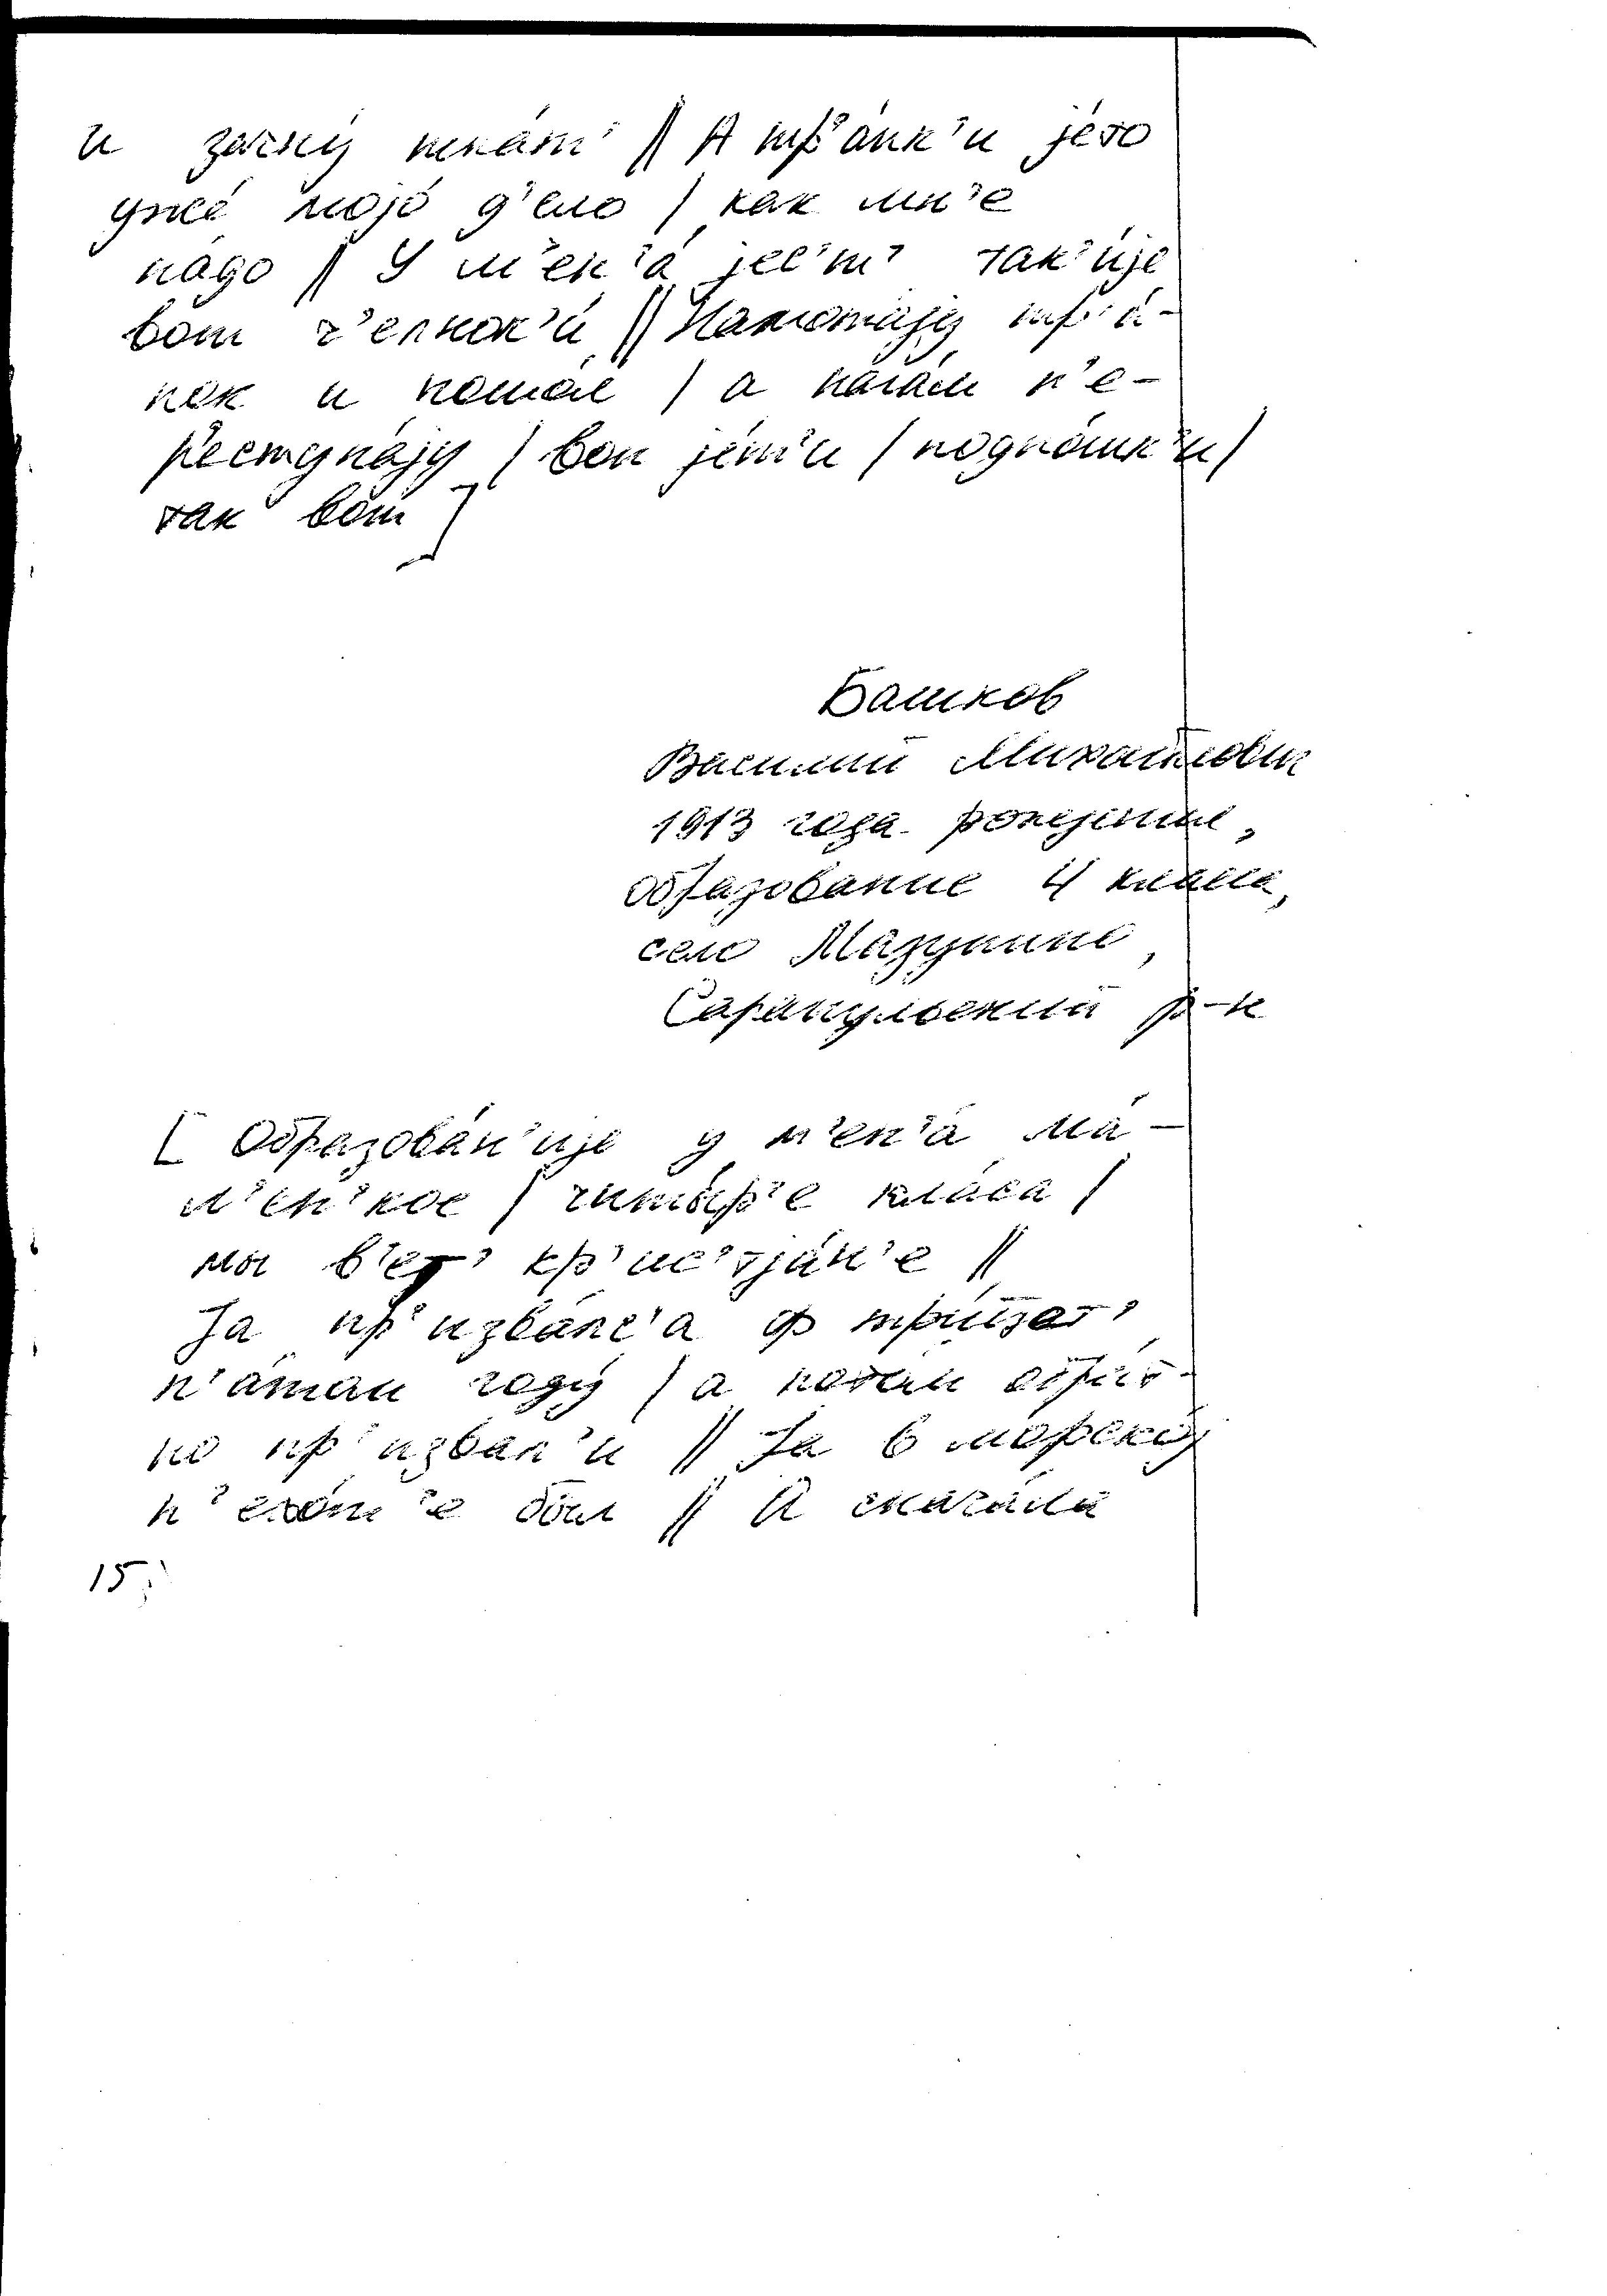 и зачну́ ткат' // А тр'а́пк'и је́то
уже́ мојо́ д'ело / как мн'е
на́до // У м'ен'а́ јес'т' так'и́је
вот ч'елнок'и́ // Намота́ју тр'а́-
пок и / а пото́м п'е-
р'еступа́ју / вон је́т'и / подно́шк'и /
так вот]
Башков
Василий Михайлович
1913 года рождения,
образование 4 класса,
село Мазунино,
Сарапульский р-н
[Образова́н'ије у м'ен'а́ ма́-
л'ен'кое / читы́р'е кла́са /
мы в'ет' кр'ис'т'ја́н'е //
Ја пр'изва́лс'а ф три́цат'
п'а́том году́ / а пото́м обра́т-
но пр'извал'и // Ја в морско́ј
п'ехо́т'е был // А снача́ла
15